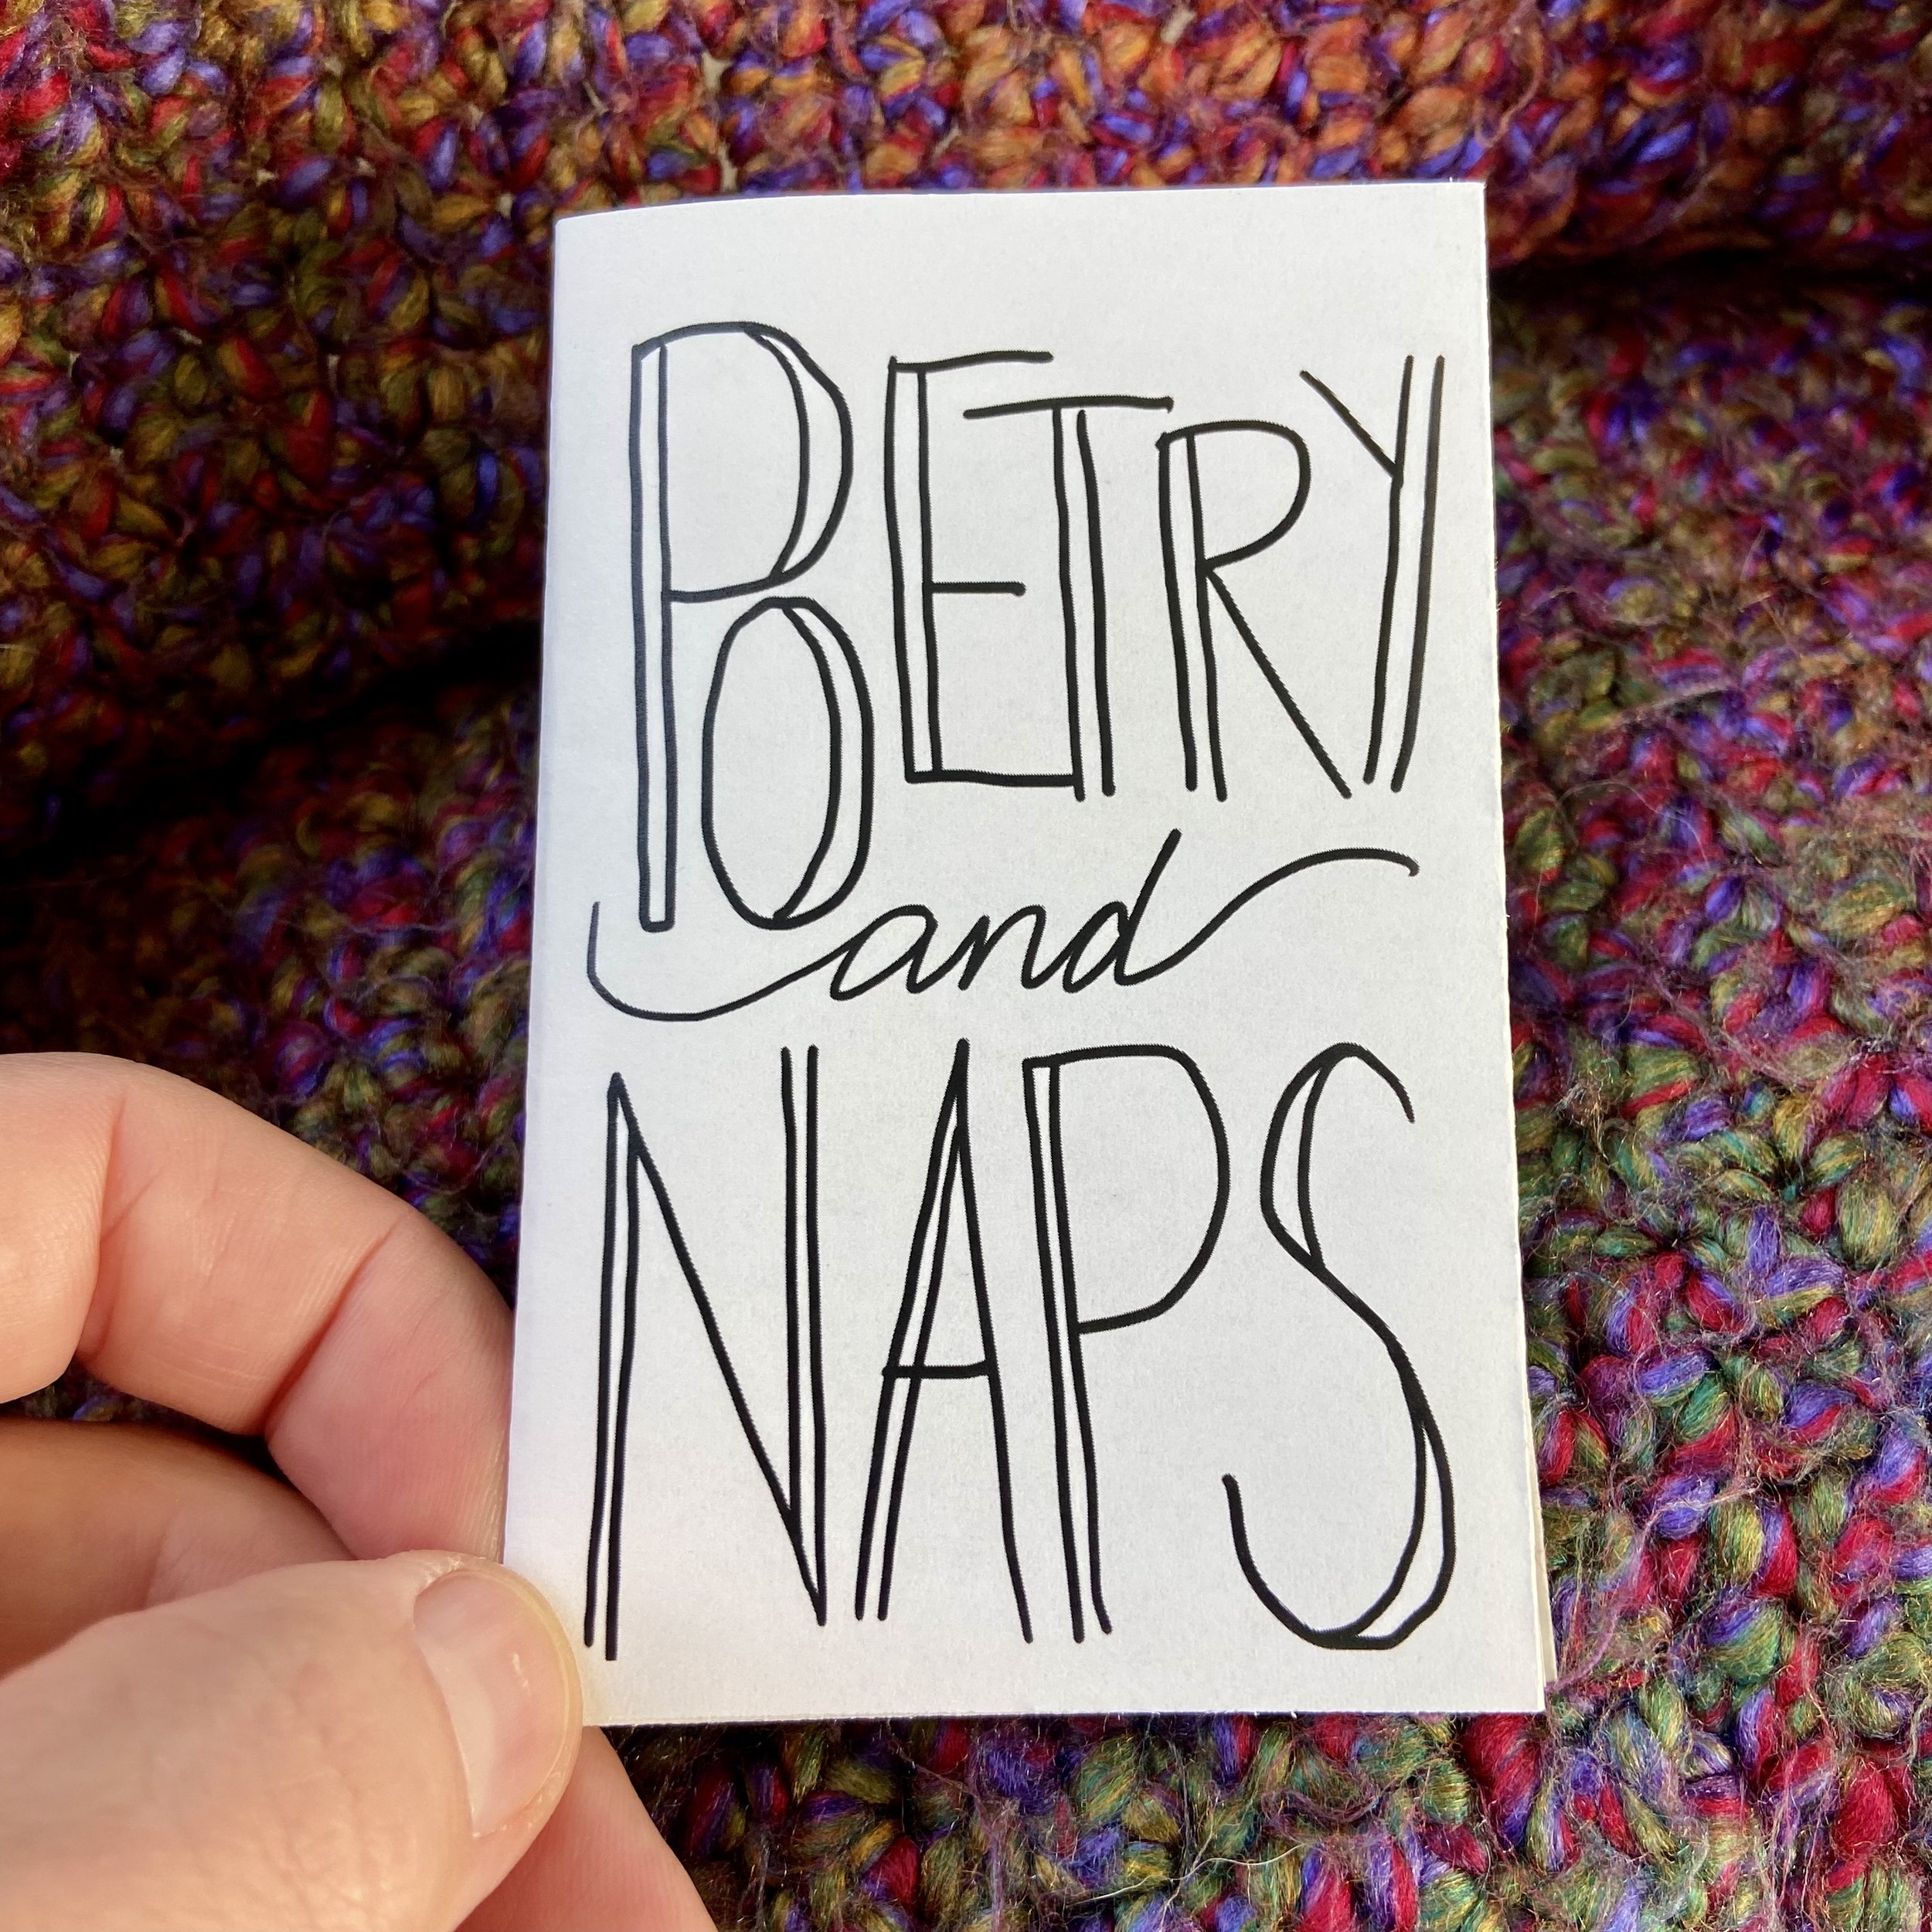 POETRY
and
NAPS